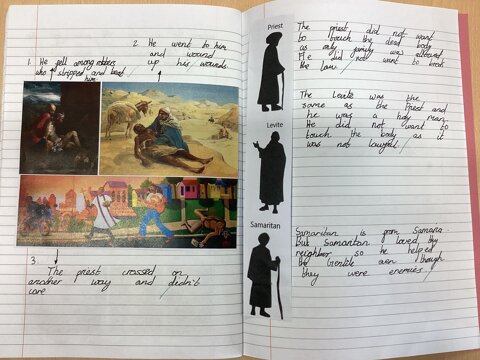 2. He went to him
and wound
up his wounds.
1. He fell among robbers
who stripped and beat
him
3.
The priest crossed on
another way and didn't
care
Priest
The priest did not want
to touch the dead body
as only family was allowed
He did not want to break
the law.
Levite
The Levite was the
same as the Priest and
he was a holy man.
He did not want to
touch the body as it
was not lawful
Samaritan
Samaritan is from Samaria.
But Samaritan loved thy
neighbor so he helped
the Gentile even though
they were enemies.